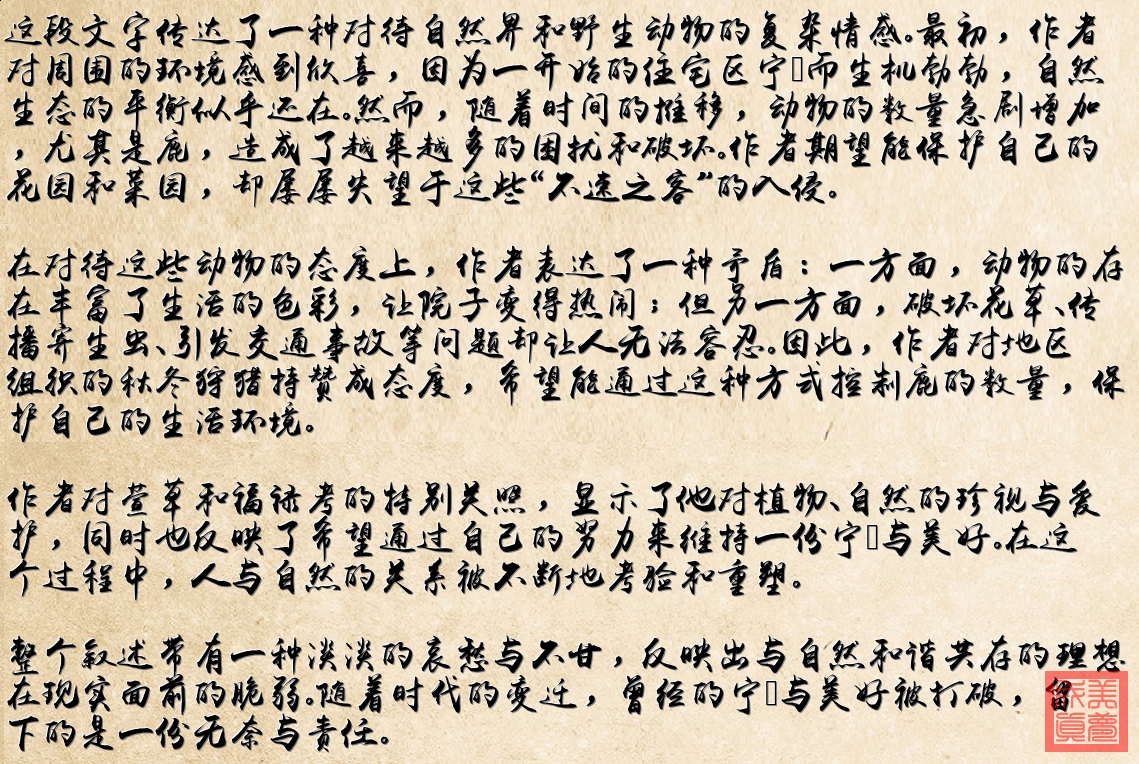 这段文字传达了一种对待自然界和野生动物的复杂情感。最初，作者
对周围的环境感到欣喜，因为一开始的住宅区宁▯而生机勃勃，自然
生态的平衡似乎还在。然而，随着时间的推移，动物的数量急剧增加
，尤其是鹿，造成了越来越多的困扰和破坏。作者期望能保护自己的
花园和菜园，却屡屡失望于这些“不速之客”的入侵。
在对待这些动物的态度上，作者表达了一种矛盾：一方面，动物的存
在丰富了生活的色彩，让院子变得热闹；但另一方面，破坏花草、传
播寄生虫、引发交通事故等问题却让人无法容忍。因此，作者对地区
组织的秋冬狩猎持赞成态度，希望能通过这种方式控制鹿的数量，保
护自己的生活环境。
作者对萱草和福禄考的特别关照，显示了他对植物、自然的珍视与爱
护，同时也反映了希望通过自己的努力来维持一份宁▯与美好。在这
个过程中，人与自然的关系被不断地考验和重塑。
整个叙述带有一种淡淡的哀愁与不甘，反映出与自然和谐共存的理想
在现实面前的脆弱。随着时代的变迁，曾经的宁▯与美好被打破，留
下的是一份无奈与责任。